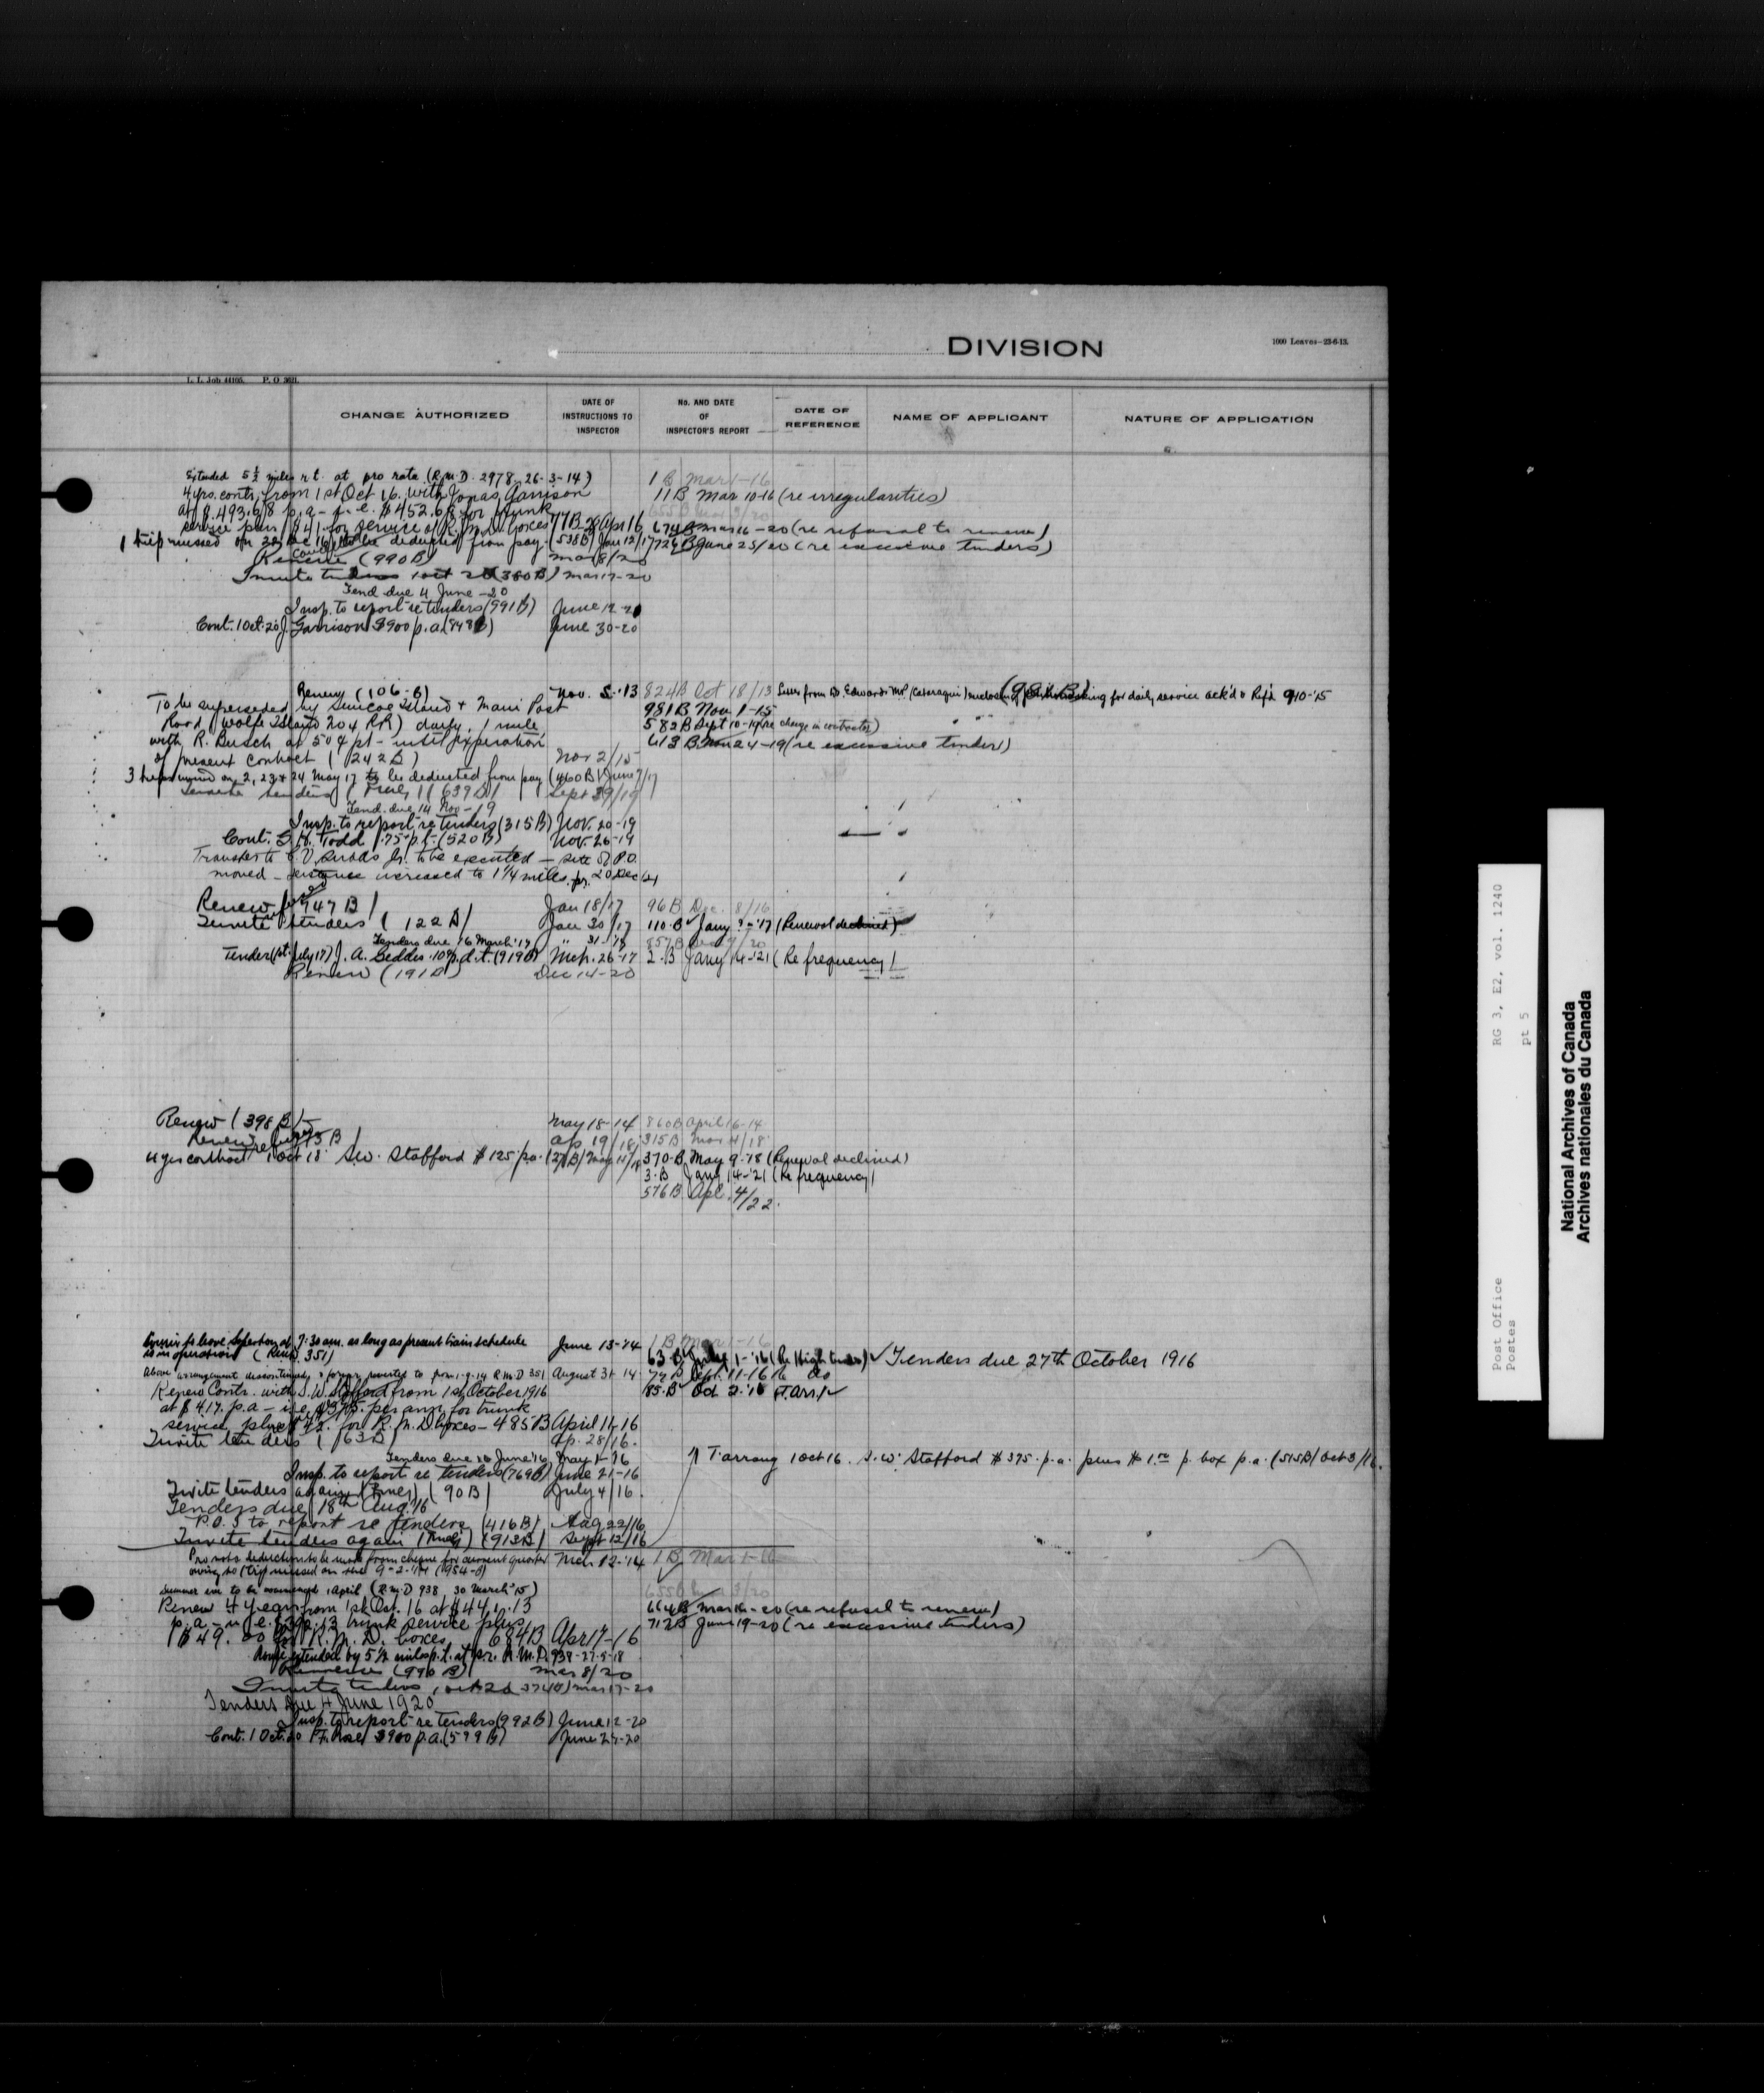 DIVISION
1000 Leaves—23-6-13.
L. L. Job 44105. P. O 3021.
CHANGE AUTHORIZED
DATE OF INSTRUCTIONS TO INSPECTOR
No. AND DATE OF INSPECTOR'S REPORT
DATE OF REFERENCE
NAME OF APPLICANT
NATURE OF APPLICATION
Extended 5½ miles r.t. at pro rata (R.M.D. 2978, 26-3-14) 1 B Mar 1-16
4 yrs. contr. from 1st Oct 16. with Jonas Garrison 11B Mar 10-16 (re irregularities)
at $.493.68 p.a - i.e. $452.68 for trunk 655B Mar 3/20
service plus $41 for service of R.M.D. boxes 77B 28 Apl 16 674B Mar 16-20 (re refusal to renew)
1 trip missed on 22 Dec 16 to be deducted from pay. (538B) Jan 12/17 726B June 25/20 (re excessive tenders)
Renew (990B) Mar 8/20
Invite tenders 1 Oct 20 (380B) Mar 17-20
Tend. due 4 June -20
Insp. to report re tenders (991B) June 12-20
Cont. 1 Oct. 20 J. Garrison $900 p.a. June 30-20
Renew (106-B) Nov. 5-'13 824B Oct 18/13 Letter from Dr. Edwards MP asking for daily service ack'd & Ref'd 9-10-'15
To be superseded by Simcoe Island & Main Post 981B Nov 1-15
Road (Wolfe Island 204 RR) daily, 1 mile 582B Sept 10-19 (re change in contractor)
with R. Busch at 50¢ pt - until expiration 613 B Nov 24-19 (re excessive tender)
of present contract (242B) Nov 2/15
3 trips missed on 2, 23 & 24 May 17 to be deducted from pay (460B) June 7/17
Invite tenders (639B) Sept 29/19
Tend. due 14 Nov -19
Insp. to report re tenders (315B) Nov. 20-19
Cont. Todd .75 p.t. (520B) Nov. 26-19
Transfer to to be executed — site of P.O.
moved — distance increased to 1¼ miles 20 Dec 21
Renew (747B) Jan 18/17 96B Dec. 8/16
Invite tenders (122B) Jan 30/17 110-B Jany '17 (Renewal declined)
Tenders due 16 March '17 " 31-'17
Tender (1st July 17) J. A. Geddes .10¢ p.d.t. (919B) Mch. 26-17 2-B Jany 14-'21 (Re frequency)
Renew (191B) Dec 14-20
Renew (398B) May 18-14 860B April 16-14
Renew Ap 19/18 315B Mar 4/18
4 yrs contract 1 Oct 18 S.W. Stafford $125 p.a. May 11/18 370-B May 9-'18 (Renewal declined)
3-B Jany 14-'21 (Re frequency)
576B Apl. 4/22.
Courier to leave at 7:30 am. as long as present train schedule June 13-'14 1 B Mar 1-16
is in operation (R.M.D. 351) 63-B July 1-'16 (Re High tender) Tenders due 27th October 1916
Above arrangement discontinued & former reverted to from 1-9-14 R.M.D 351 August 31-14 77B Sept. 11-1616 do
Renew Contr. with S.W. Stafford from 1st October 1916 85-B Oct 2-'16 (T. Arr.)
at $417. p.a - i.e. $375. per ann for trunk
service plus $42. for R.M.D boxes - 485B April 11-16
Invite tenders (163B) Ap. 28/16.
Tenders due 16 June '16 May 1-'16
T. arrang 1 Oct 16. S.W. Stafford $395. p.a. plus $1.00 p. box p.a. (515B) Oct 3/16.
Insp. to report re tenders (769B) June 21-16
Invite tenders again (90B) July 4/16.
Tenders due 18th Aug. '16
P.O.I to report re tenders (416B) Aug 22/16
Invite tenders again (912B) Sept 12/16
Pro rata deduction to be made from cheque for current quarter Mch 12-'14 1 B Mar 1-16
owing to 1 trip missed on the 9-2-'14 (954-B)
Summer arr. to be commenced 1 April (R.M.D 938, 30 March '15) 655B Mar 3/20
Renew 4 years from 1st Oct. 16 at $441.13 664B Mar 16-20 (re refusal to renew)
p.a - i.e. trunk service plus 712B June 19-20 (re excessive tenders)
$49.00 for R.M.D. boxes 684B Apr 17-16
Route extended by 5½ miles p.t. at p.r. R.M.D. 938-27-5-18
Renew (990B) Mar 8/20
Invite tenders, Oct 20 Mar 17-20
Tenders due 4 June 1920
Insp. to report re tenders (992B) June 12-20
Cont. 1 Oct. 20 F. Rose $900 p.a. (599B) June 24-20
RG 3, E2, vol. 1240
pt 5
Post Office
Postes
National Archives of Canada
Archives nationales du Canada